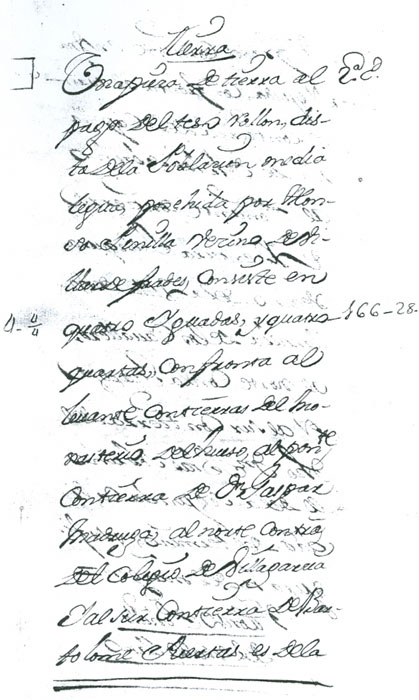 Tierra
Otra pieza de tierra al 2ª. C.
pago del teso rollon, dis-
ta de la Poblacion media
legua, posehida por Alon-
so Chinilla Vezino de Vi-
llar de frades, Consiste en
4 - 4/4 quatro Yguadas, y quatro 166-28.
quartas, Confronta al
levante Con tierras del Mo-
nasterio del Bueso, al ponte
Con tierra de Dn. Gaspar
Madruga, al norte Con tra
del Colegio de Villagarcia
Y al sur Con tierra de Bar-
tolome Huertas, es dela